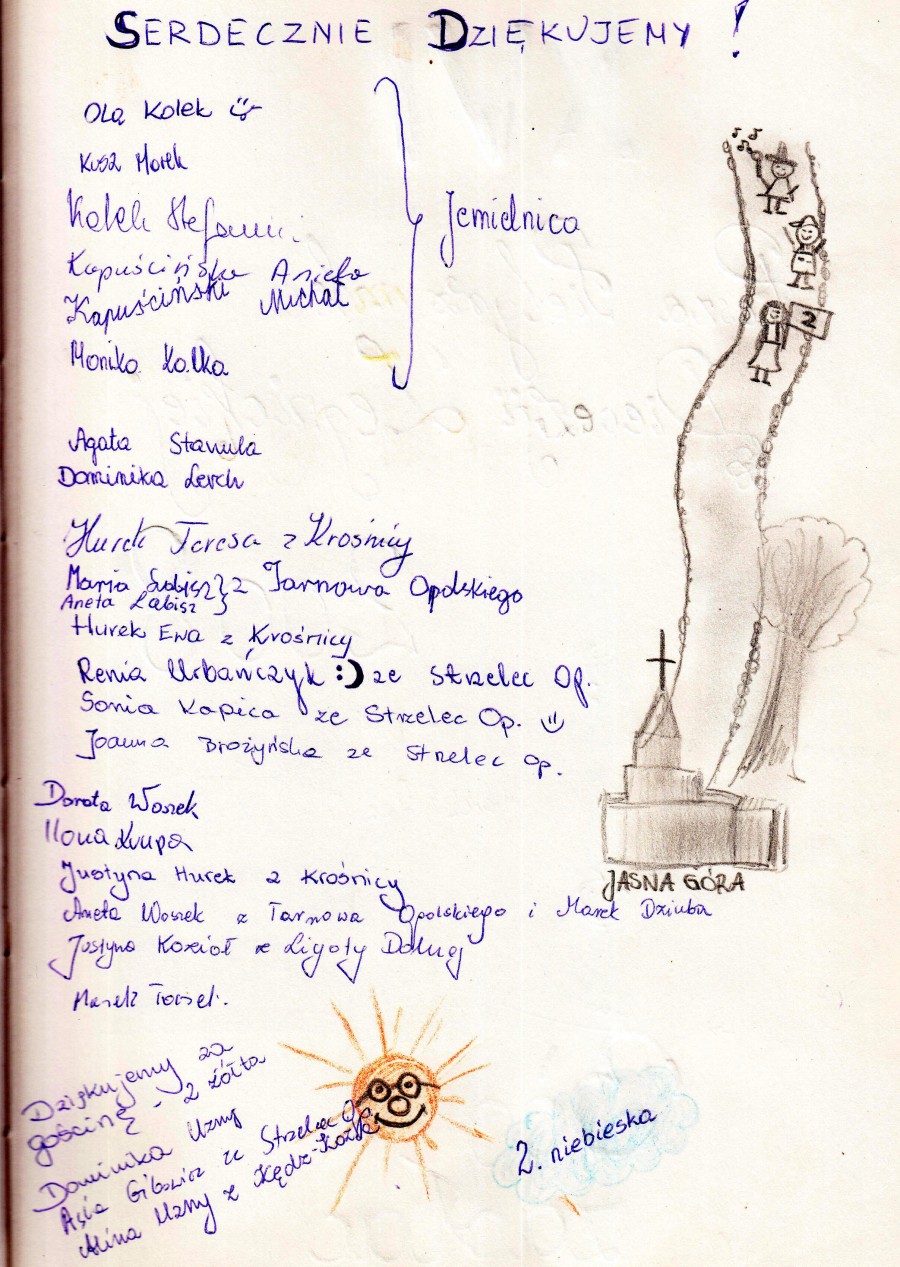 SERDECZNIE DZIĘKUJEMY!
Olą Kolek
Kusz Marek
Kolek Stefanii
Kapuścińska Aniela
Kapuściński Michał
Jemielnica
Monika Kalka
Agata Stanula
Dominika Lerch
Hurek Teresa z Krośnicy
Maria Łabisz } z Tarnowa Opolskiego
Aneta Łabisz
Hurek Ewa z Krośnicy
Renia Urbańczyk :) ze Strzelec Op.
Sonia Kapica ze Strzelec Op.
Joanna Brożyńska ze Strzelec Op.
Dorota Wosek
Ilona Krupa
Justyna Hurek z Krośnicy
Aneta Wosek z Tarnowa Opolskiego i Marek Dziuba
Justyna Kozioł ze Ligoty Dolnej
Marek
2
JASNA GÓRA
Dziękujemy za
gościnę - 2 żółta
Dominika Uzny
Asia ze Strzelec Op
Alina Uzny z Kędz-Koźla
2. niebieska